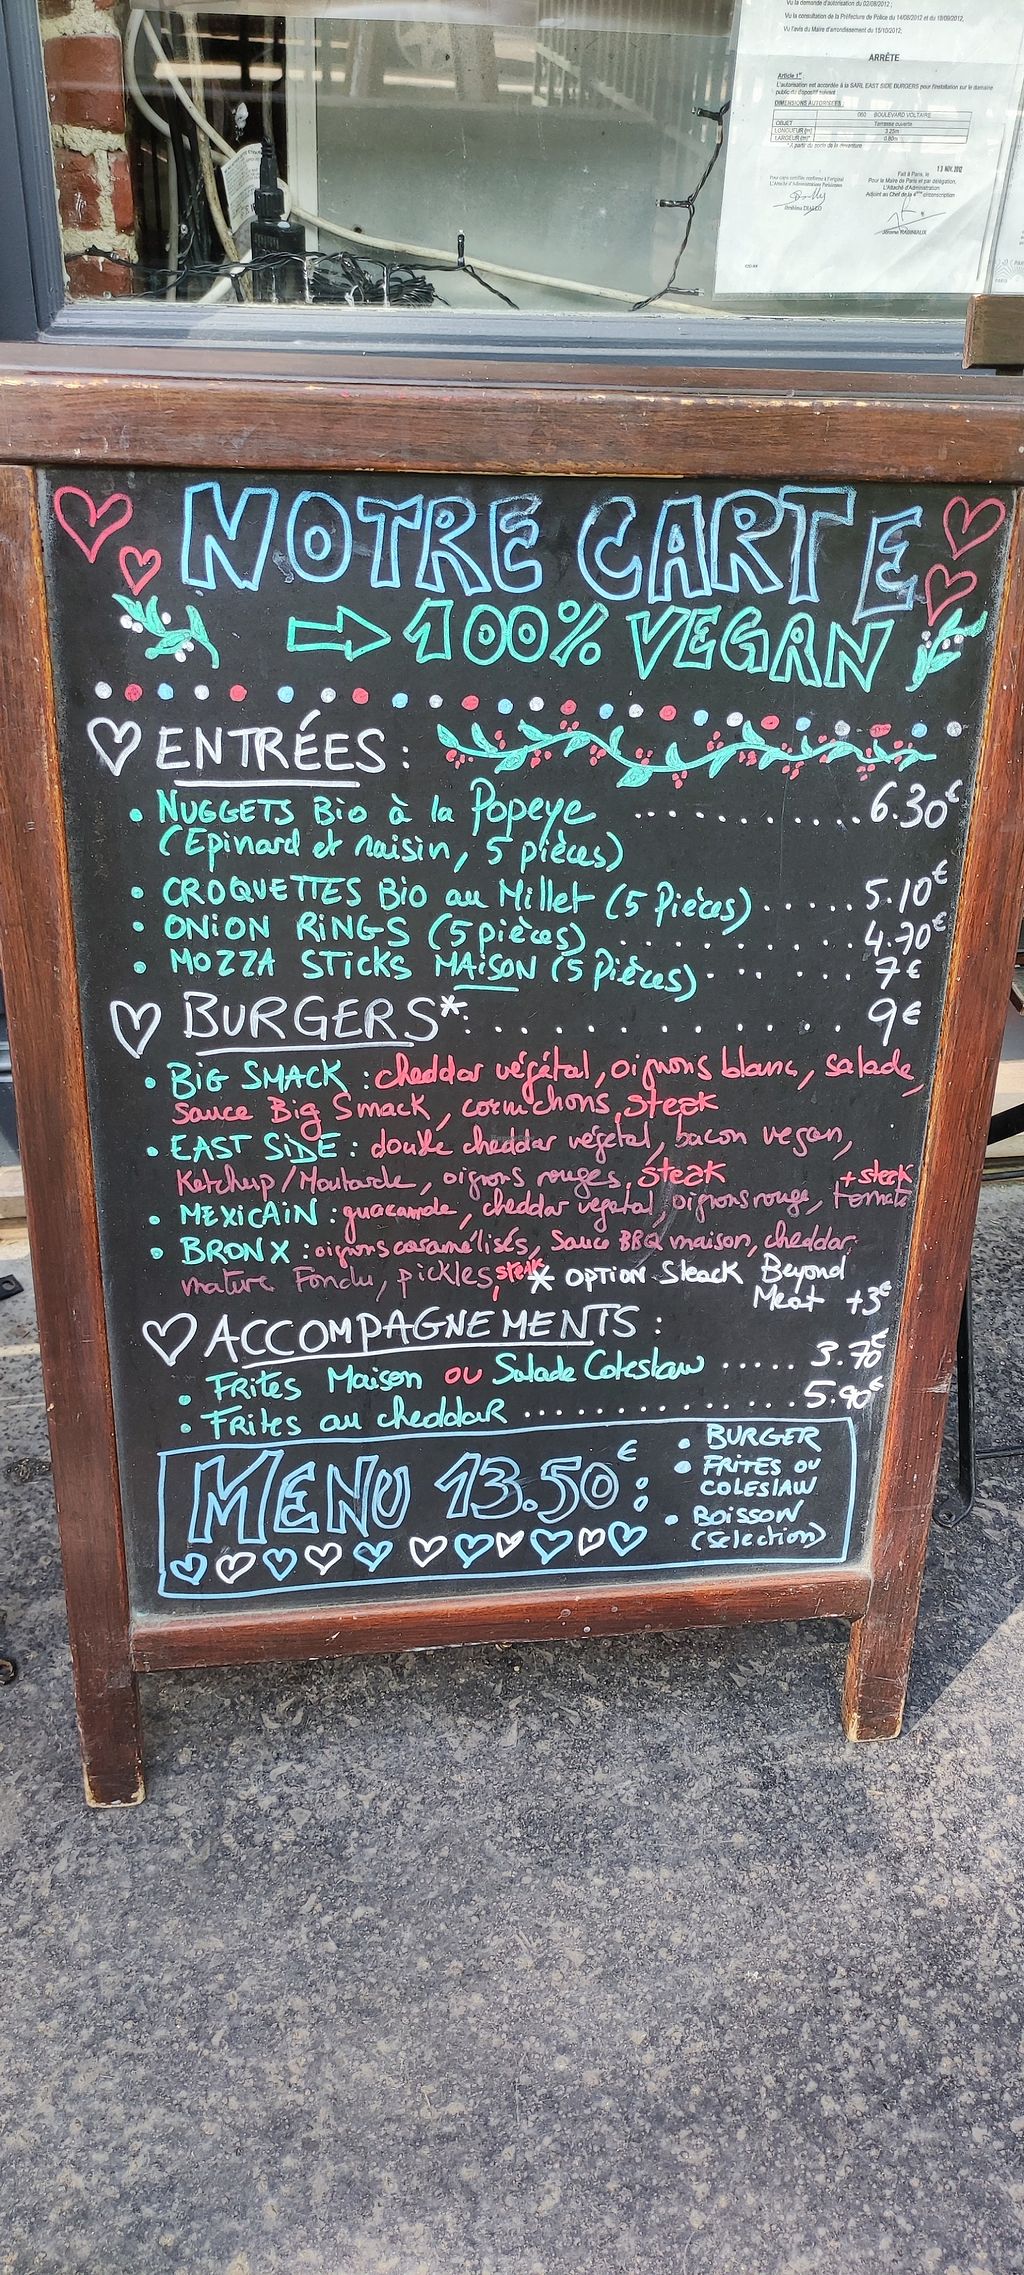 Vu la demande d'autorisation du 02/08/2012 ;
Vu la consultation de la Préfecture de Police du 14/08/2012 et du 18/09/2012,
Vu l'avis du Maire d'arrondissement du 15/10/2012,
ARRÊTE
Article 1er
L'autorisation est accordée à la SARL EAST SIDE BURGERS pour l'installation sur le domaine
public du dispositif suivant
DIMENSIONS AUTORISEES
060 BOULEVARD VOLTAIRE
OBJET Terrasse ouverte
LONGUEUR (m) 3.25m
LARGEUR (m)* 0.80m
13 NOV. 2012
Fait à Paris, le
Pour le Maire de Paris et par délégation,
L'Attaché d'Administration
Adjoint au Chef de la 4ème circonscription
NOTRE CARTE
100% VEGAN
ENTRÉES :
• NUGGETS Bio à la Popeye ............ 6.30€
(Epinard et raisin, 5 pièces)
• CROQUETTES Bio au Millet (5 Pièces) ..... 5.10€
• ONION RINGS (5 pièces) .......... 4.70€
• MOZZA STICKS MAISON (5 Pièces) ..... 7€
BURGERS* : ............ 9€
• BIG SMACK : cheddar végétal, oignons blanc, salade,
Sauce Big Smack, cornichons, steak
• EAST SIDE : double cheddar végétal, bacon vegan,
Ketchup/Moutarde, oignons rouges, steak
+ steak
• MEXICAIN : guacamole, cheddar végétal, oignons rouge, tomate
• BRONX : oignons caramélisés, Sauce BBQ maison, cheddar
mature Fondu, pickles, steak
* OPTION Steack Beyond
Meat +3€
ACCOMPAGNEMENTS :
• FRITES Maison OU Salade Coleslaw ..... 3.70€
• FRITES au cheddaR ............... 5.90€
MENU 13.50€ :
• BURGER
• FRITES OU
COLESLAW
• BOISSON
(Selection)